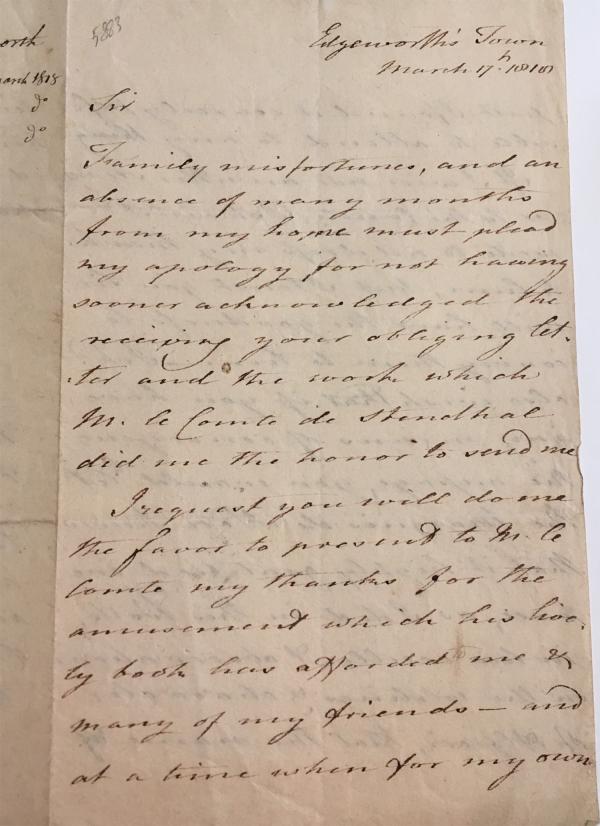 5883
orth
March 1818
do
do
Edgeworth's Town
March 17th 1818
Sir
Family misfortunes, and an
absence of many months
from my home must plead
my apology for not having
sooner acknowledged the
receiving your obliging let-
-ter and the work which
M. le Comte de Stendhal
did me the honor to send me
I request you will do me
the favor to present to M. le
Comte my thanks for the
amusement which his live-
ly book has afforded me &
many of my friends — and
at a time when for my own